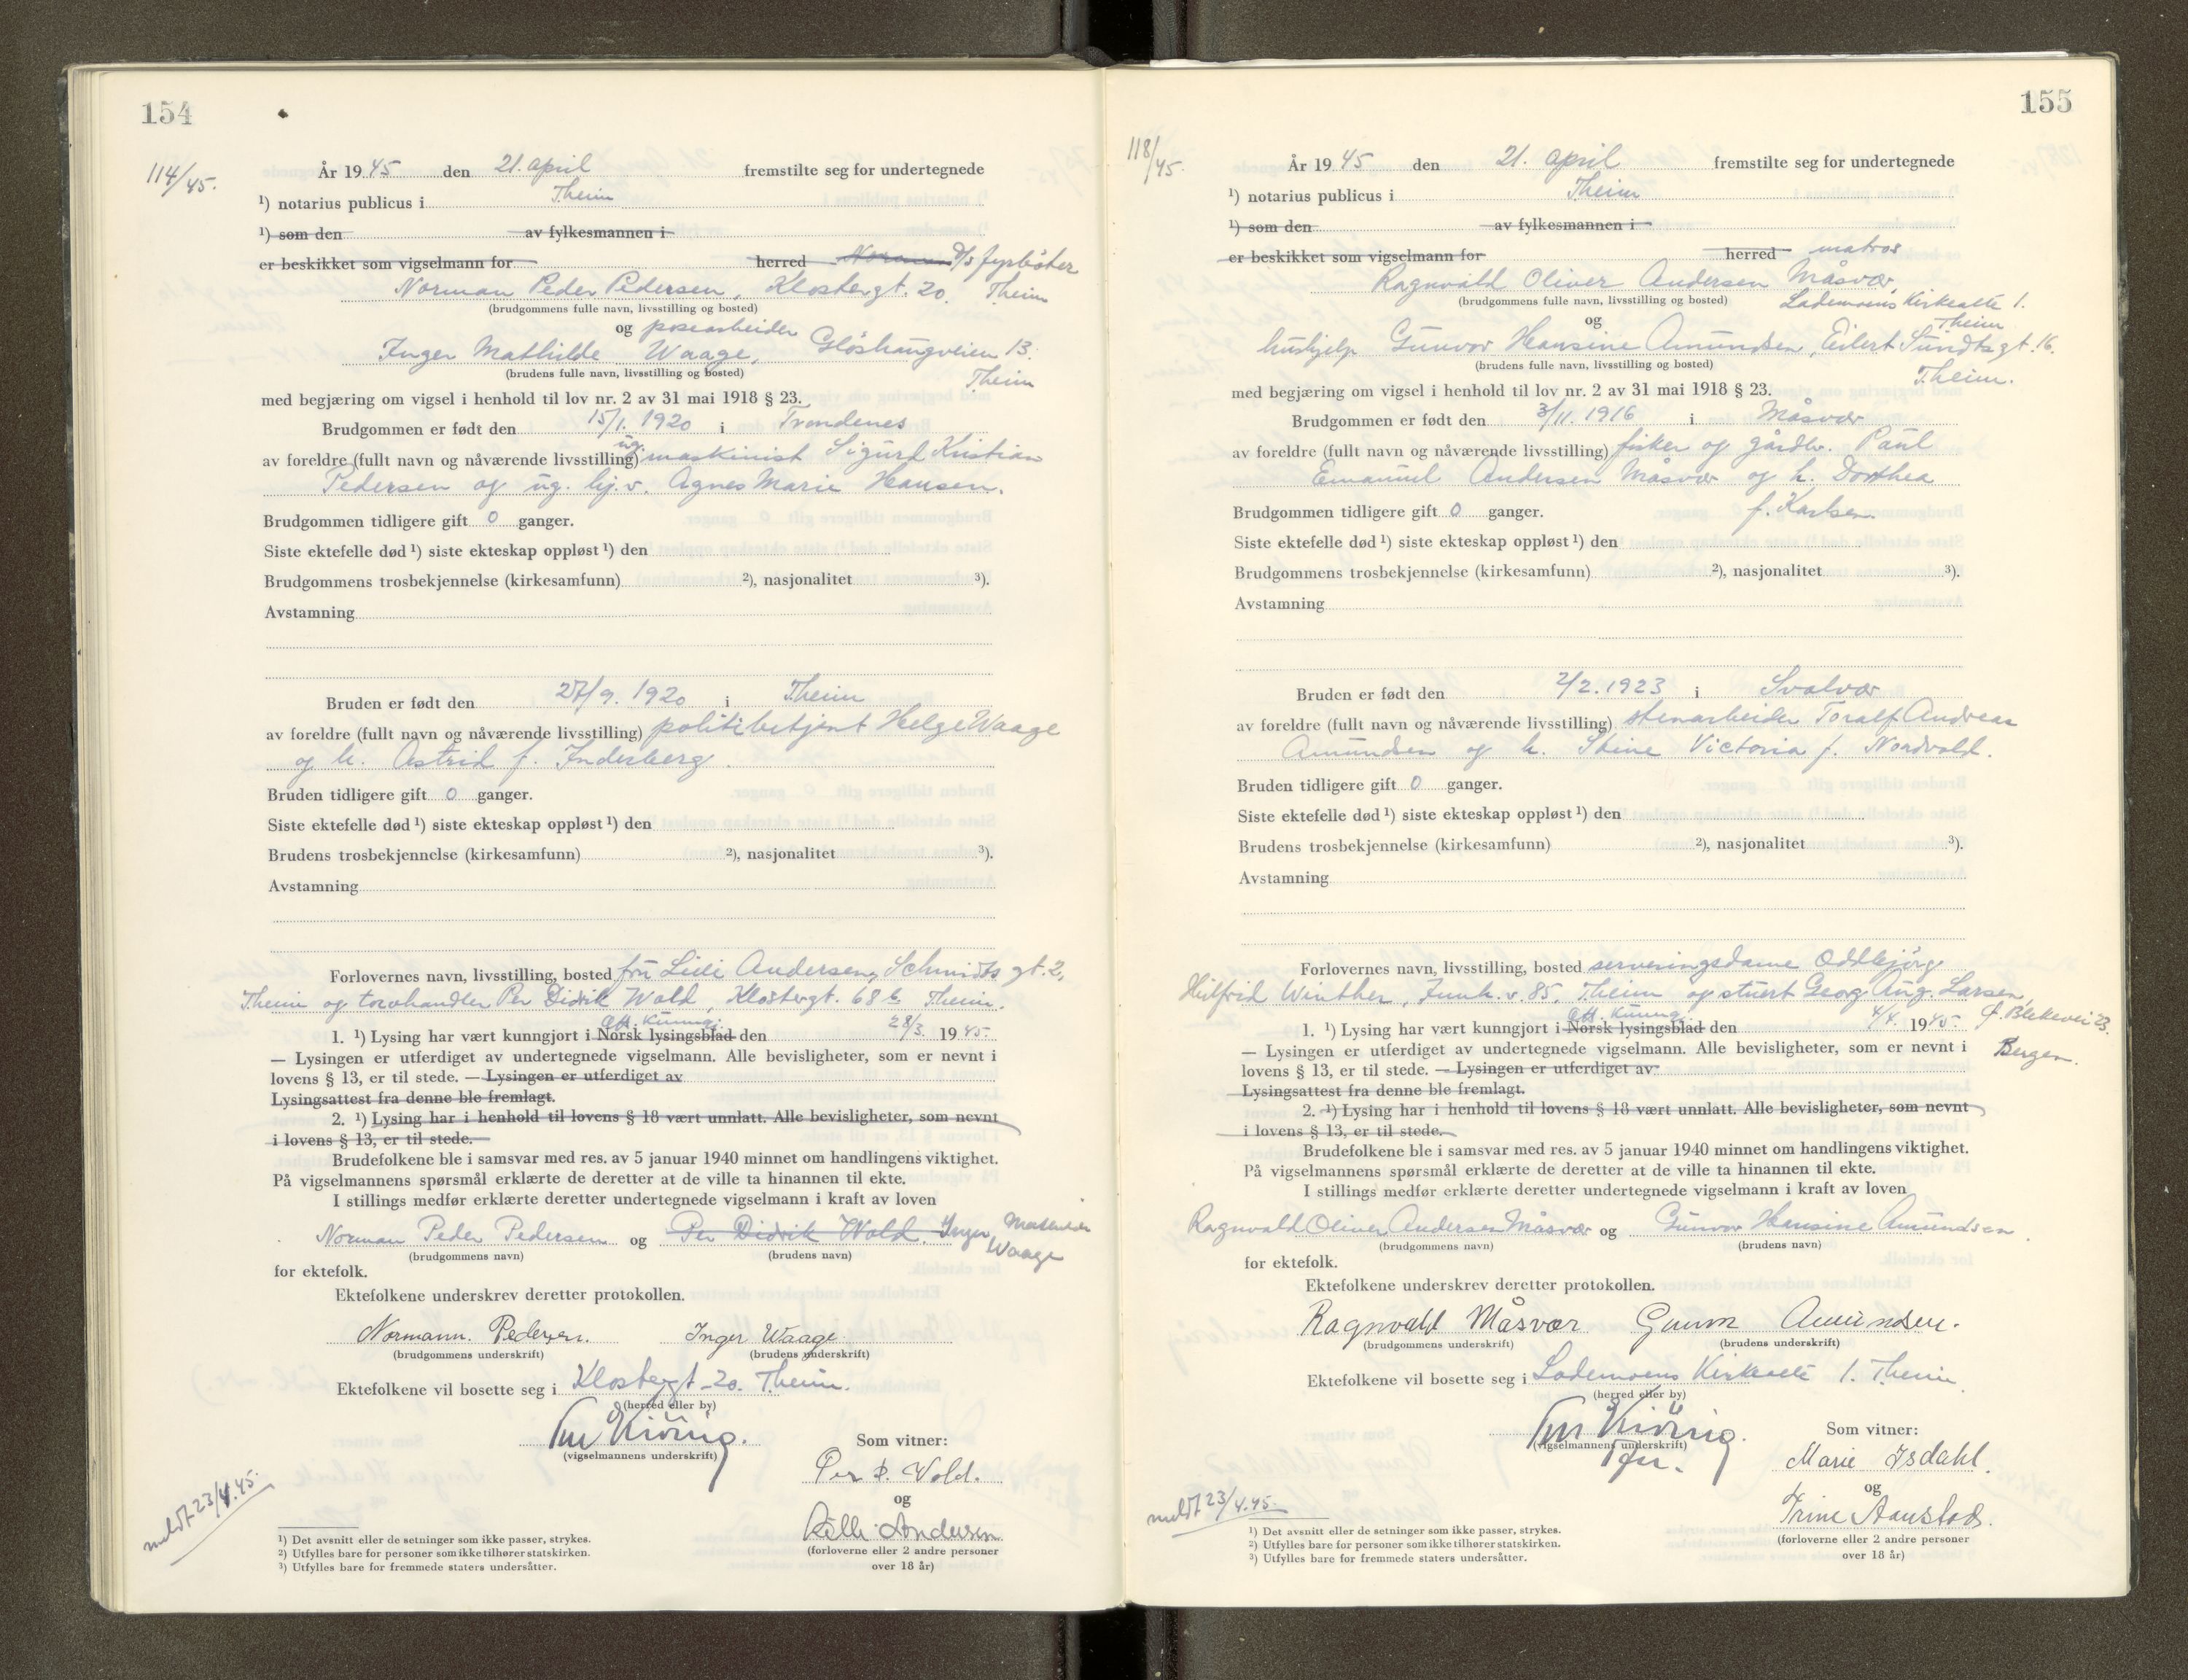 154
114/45.
År 1945 den 21. april fremstilte seg for undertegnede
¹) notarius publicus i Theim
¹) som den av fylkesmannen i
er beskikket som vigselmann for herred D/s fyrbøter
Norman Peder Pedersen, Klostergt. 20. Theim
(brudgommens fulle navn, livsstilling og bosted)
og posearbeider
Inger Mathilde Waage, Gløshaugveien 13.
(brudens fulle navn, livsstilling og bosted) Theim
med begjæring om vigsel i henhold til lov nr. 2 av 31 mai 1918 § 23.
Brudgommen er født den 15/1. 1920 i Trondenes
av foreldre (fullt navn og nåværende livsstilling) ug. maskinist Sigurd Kristian
Pedersen og ug. hj.v. Agnes Marie Hansen.
Brudgommen tidligere gift 0 ganger.
Siste ektefelle død ¹) siste ekteskap oppløst ¹) den
Brudgommens trosbekjennelse (kirkesamfunn) ²), nasjonalitet ³).
Avstamning
Bruden er født den 27/9. 1920 i Theim
av foreldre (fullt navn og nåværende livsstilling) politibetjent Helge Waage
og h. Astrid f. Inderberg.
Bruden tidligere gift 0 ganger.
Siste ektefelle død ¹) siste ekteskap oppløst ¹) den
Brudens trosbekjennelse (kirkesamfunn) ²), nasjonalitet ³).
Avstamning
Forlovernes navn, livsstilling, bosted fru Lilli Andersen, Schmidts gt. 2,
Theim og torvhandler Per Didrik Wold, Klostergt. 68 b Theim.
off. kunng.
1. ¹) Lysing har vært kunngjort i Norsk lysingsblad den 28/3. 1945.
— Lysingen er utferdiget av undertegnede vigselmann. Alle bevisligheter, som er nevnt i
lovens § 13, er til stede. — Lysingen er utferdiget av
Lysingsattest fra denne ble fremlagt.
2. ¹) Lysing har i henhold til lovens § 18 vært unnlatt. Alle bevisligheter, som nevnt
i lovens § 13, er til stede.
Brudefolkene ble i samsvar med res. av 5 januar 1940 minnet om handlingens viktighet.
På vigselmannens spørsmål erklærte de deretter at de ville ta hinannen til ekte.
I stillings medfør erklærte deretter undertegnede vigselmann i kraft av loven
Norman Peder Pedersen og Per Didrik Wold. Inger Mathilde Waage
(brudgommens navn) (brudens navn)
for ektefolk.
Ektefolkene underskrev deretter protokollen.
Normann. Pedersen. Inger Waage
(brudgommens underskrift) (brudens underskrift)
Ektefolkene vil bosette seg i Klostergt. 20. Theim.
(herred eller by)
(vigselmannens underskrift)
Som vitner:
Per D. Wold.
og
Lilli Andersen
(forloverne eller 2 andre personer
over 18 år)
meldt 23/4.45.
¹) Det avsnitt eller de setninger som ikke passer, strykes.
²) Utfylles bare for personer som ikke tilhører statskirken.
³) Utfylles bare for fremmede staters undersåtter.
155
118/45.
År 1945 den 21. april fremstilte seg for undertegnede
¹) notarius publicus i Theim
¹) som den av fylkesmannen i
er beskikket som vigselmann for herred matros
Ragnvald Oliver Andersen Måsvær,
(brudgommens fulle navn, livsstilling og bosted) Lademoens Kirkealle 1.
og Theim
hushjelp Gunvor Hansine Amundsen, Eilert Sundtsgt. 16.
(brudens fulle navn, livsstilling og bosted) Theim.
med begjæring om vigsel i henhold til lov nr. 2 av 31 mai 1918 § 23.
Brudgommen er født den 3/11. 1916 i Måsvær
av foreldre (fullt navn og nåværende livsstilling) fisker og gårdbr. Paul
Emanuel Andersen Måsvær og h. Dorthea
Brudgommen tidligere gift 0 ganger. f. Karlsen
Siste ektefelle død ¹) siste ekteskap oppløst ¹) den
Brudgommens trosbekjennelse (kirkesamfunn) ²), nasjonalitet ³).
Avstamning
Bruden er født den 2/2. 1923 i Svolvær
av foreldre (fullt navn og nåværende livsstilling) stenarbeider Toralf Andreas
Amundsen og h. Stine Victoria f. Nordvold.
Bruden tidligere gift 0 ganger.
Siste ektefelle død ¹) siste ekteskap oppløst ¹) den
Brudens trosbekjennelse (kirkesamfunn) ²), nasjonalitet ³).
Avstamning
Forlovernes navn, livsstilling, bosted serveringsdame Oddbjørg
Hilfrid Winther, Innh.v. 85, Theim og stuert Georg Aug. Larsen,
off. kunng.
1. ¹) Lysing har vært kunngjort i Norsk lysingsblad den 4/4. 1945. Blekevei 23.
— Lysingen er utferdiget av undertegnede vigselmann. Alle bevisligheter, som er nevnt i Bergen.
lovens § 13, er til stede. — Lysingen er utferdiget av
Lysingsattest fra denne ble fremlagt.
2. ¹) Lysing har i henhold til lovens § 18 vært unnlatt. Alle bevisligheter, som nevnt
i lovens § 13, er til stede.
Brudefolkene ble i samsvar med res. av 5 januar 1940 minnet om handlingens viktighet.
På vigselmannens spørsmål erklærte de deretter at de ville ta hinannen til ekte.
I stillings medfør erklærte deretter undertegnede vigselmann i kraft av loven
Ragnvald Oliver Andersen Måsvær og Gunvor Hansine Amundsen.
(brudgommens navn) (brudens navn)
for ektefolk.
Ektefolkene underskrev deretter protokollen.
Ragnvald Måsvær Gunvor Amundsen.
(brudgommens underskrift) (brudens underskrift)
Ektefolkene vil bosette seg i Lademoens Kirkealle 1. Theim
(herred eller by)
(vigselmannens underskrift)
Som vitner:
Marie Isdahl.
og
Trine Aanstad.
(forloverne eller 2 andre personer
over 18 år)
meldt 23/4.45.
¹) Det avsnitt eller de setninger som ikke passer, strykes.
²) Utfylles bare for personer som ikke tilhører statskirken.
³) Utfylles bare for fremmede staters undersåtter.